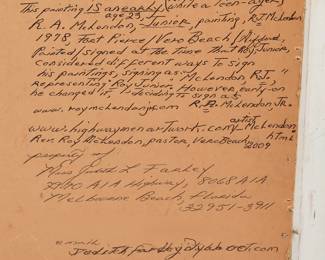 This painting IS an early (while a teen-ager
age 23,
R.A. McLendon, Junior painting, R.J. McLendon
1978 that Fierce / Vero Beach /
Painted/signed at the time that Roy, Junior,
considered different ways to sign
his paintings, signing as: "McLendon, R.J."
representing Roy Junior. However, early-on
he changed it, deciding to sign as
www.roymclendonjr.com R.A. McLendon, Jr.
artist
www.highwaymenartwork.com McLendon.html
Rev. Roy McLendon, pastor, Vero Beach 2009
property of
Miss Judith L Farley
A1A Highway, 8068 A1A
Melbourne Beach, Florida
32951-3911
email